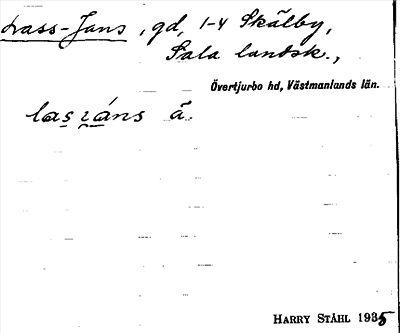 Lass-Jans, gd, 1-4 Skälby,
Sala landsk.,
Övertjurbo hd, Västmanlands län.
las jáns ä.
HARRY STÅHL 1935